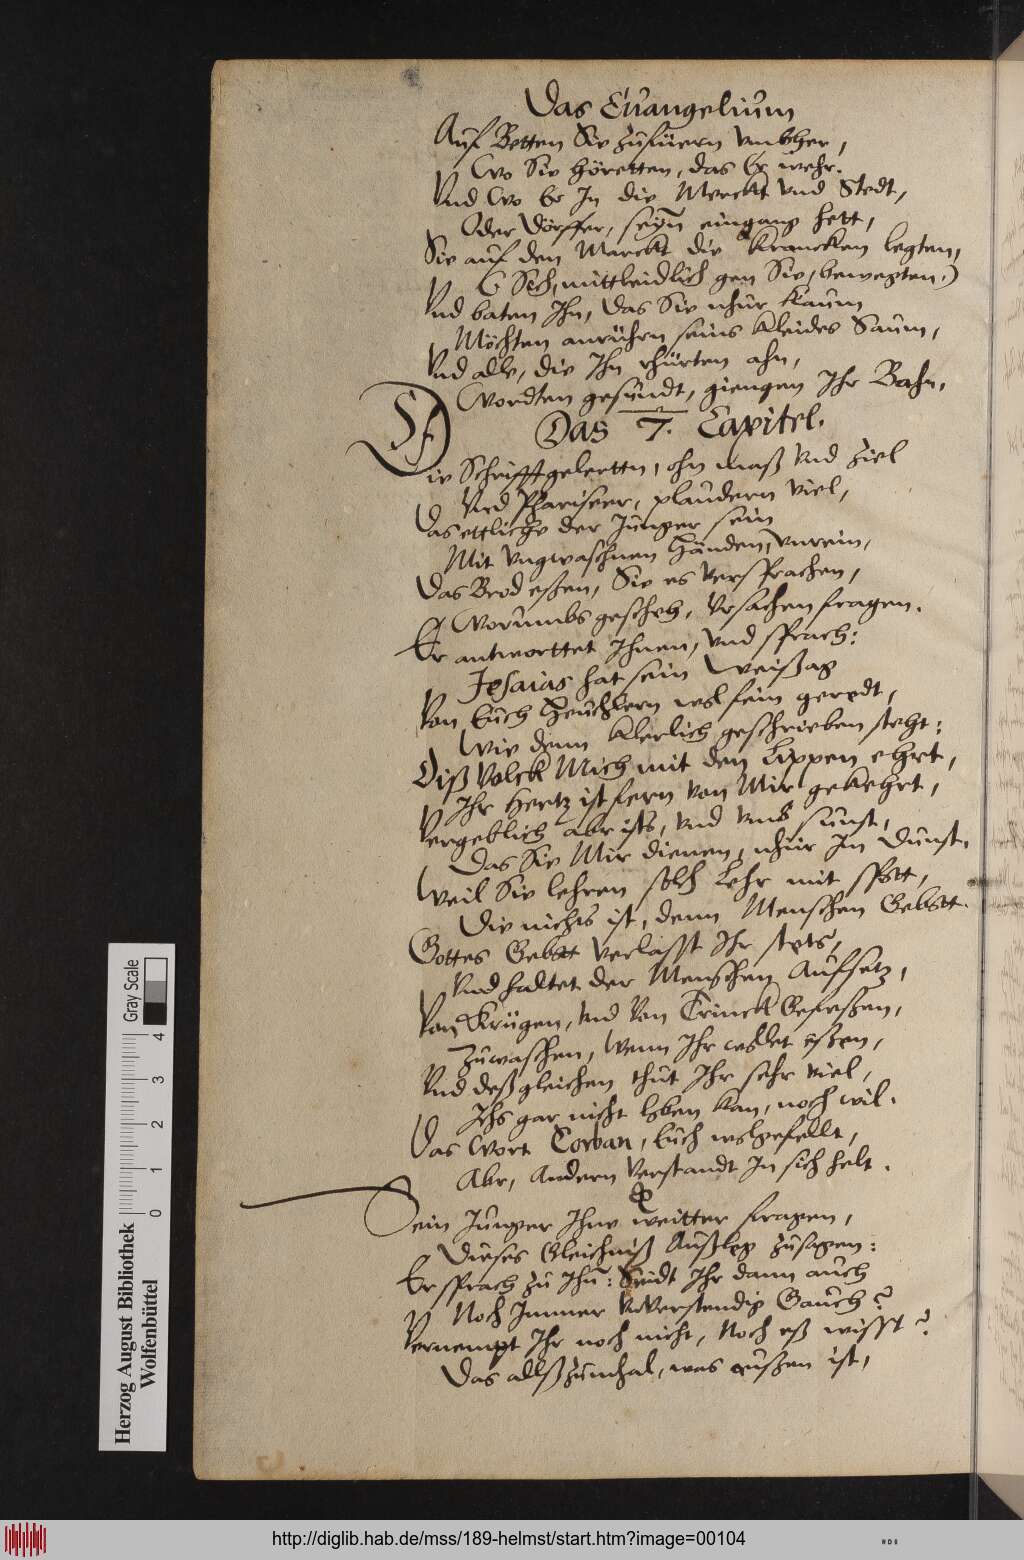 Das Euangelium
Auf Betten Sie zufüern vmbher,
Wo Sie höretten, das Er wehr.
Vnd Wo Er In die Merckt vnd Stedt,
Oder Dörffer, seÿn eingang hett,
Sie auf den Marckt die Krancken legten,
(Sich, mittleidlich gen Sie, bewegten)
Vnd baten Ihn, das Sie nhur kaum
Möchten anrührn seins Kleides Saum,
Vnd alle, die Ihn rhürten ahn,
Wordten gesundt, giengen Ihr Bahn.
Das 7. Capitel.
Die Schrifftgelertn, ohn maß vnd ziel
Vnd Phariseer, plaudern viel,
Das ettliche der Junger sein
Mit vngwaschnen Händen, vnrein,
Das Brod eßen, Sie es versprachen,
Worumbs gescheh, vrsachen fragen.
Er antworttet Ihnen, vnd sprach:
Jesaias hat sein Weißag
Von Euch Heuchlern wol fein geredt,
Wie denn klerlich geschrieben steht:
Diß Volck Mich mit den Lippen ehrt,
Ihr Hertz ist fern von Mir gekehrt,
Vergeblich abr ists, vnd vmb sunst,
Das Sie Mir dienen, nhur In Dunst.
Weil Sie lehren solch Lehr mit spott,
Die nichts ist, denn Menschen Gebott.
Gottes Gebott verlasst Ihr stets,
Vnd haltet der Menschen Aufsetz,
Von Krügen, vnd von Trinck Gefeßen,
Zuwaschen, Wenn Ihr wollet eßen,
Vnd deßgleichen thut Ihr sehr viel,
Ichs gar nicht loben kan, noch wil.
Das Wort Corban, Euch wolgefellt,
Abr, Andern verstandt In sich helt.
Sein Junger Ihne weitter fragen,
Dieses Gleichniß Außleg zusagen:
Er sprach zu Ihn: Seidt Ihr dann auch
Noch Immer vnverstendig Gauch?
Vernempt Ihr noch nicht, Noch eß wisst?
Das allß zumhal, was eußen ist,
Herzog August Bibliothek
Wolfenbüttel
0 1 2 3 4
Gray Scale
http://diglib.hab.de/mss/189-helmst/start.htm?image=00104